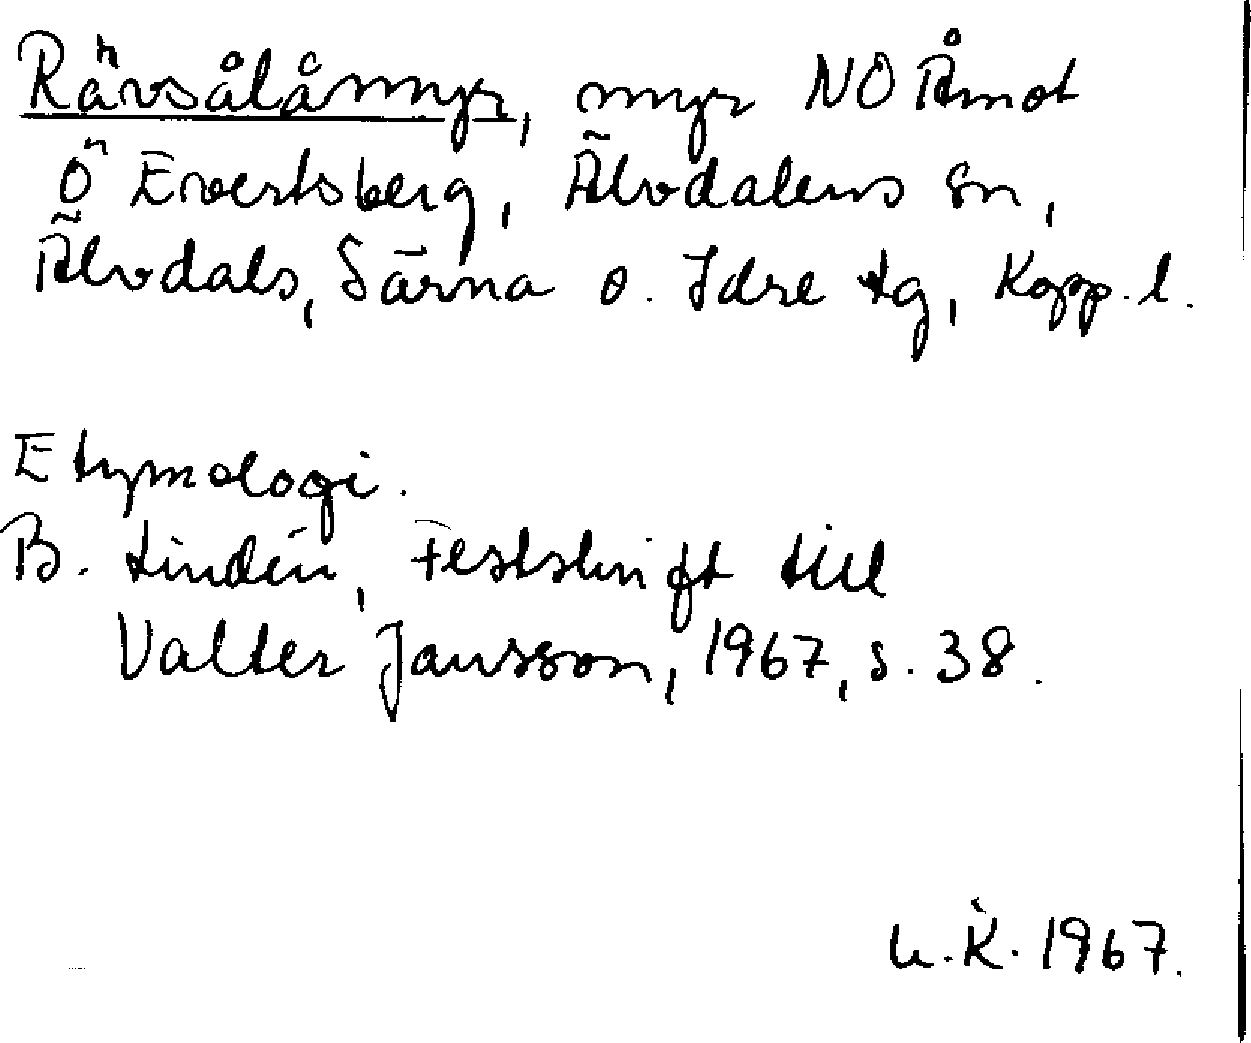 Rävsålåmyr, myr NO Åmot
Ö Evertsberg, Älvdalens sn,
Älvdals, Särna o. Idre tg, Kopp. l.
Etymologi.
B. Lindén, Festskrift till
Valter Jansson, 1967, s. 38.
u.K. 1967.